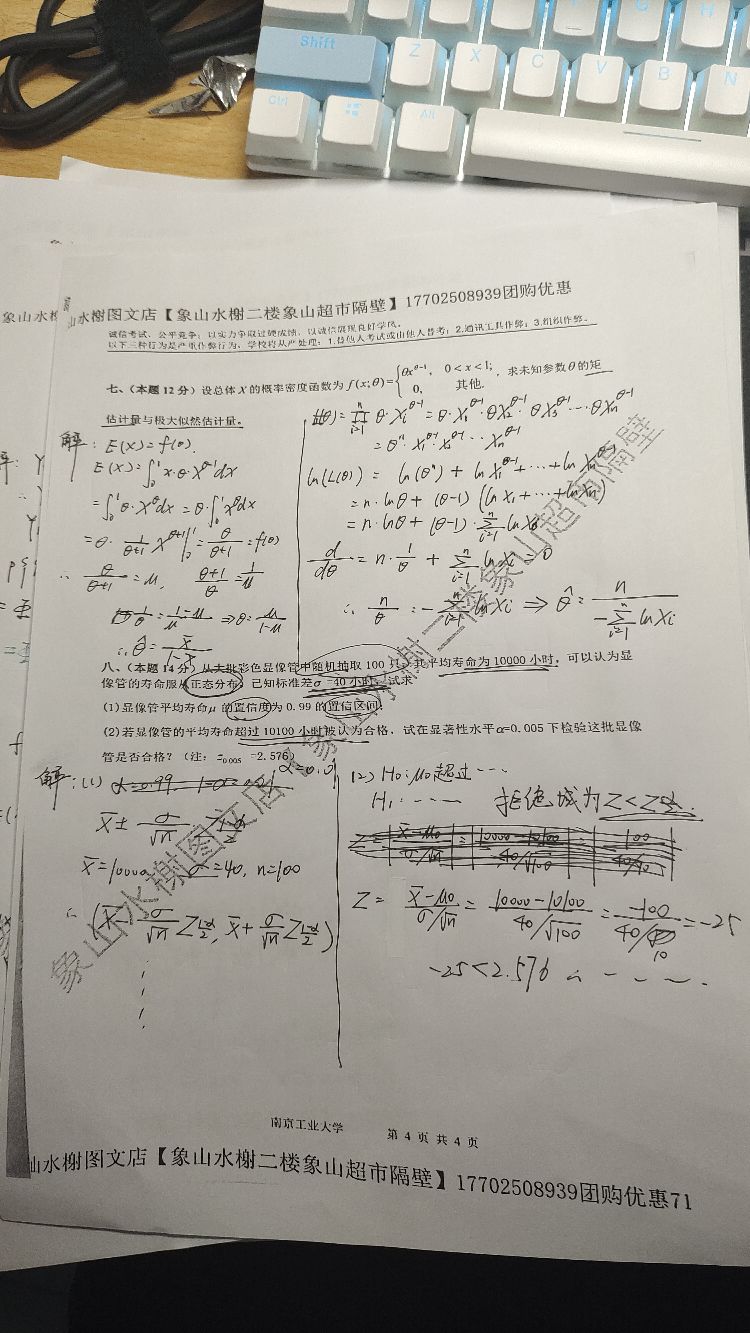 Shift
Z
X
C
V
B
N
G
H
Ctrl
Alt
山水榭图文店【象山水榭二楼象山超市隔壁】17702508939团购优惠
诚信考试、公平竞争；以实力争取过硬成绩，以诚信展现良好学风。
以下三种行为是严重作弊行为，学校将从严处理：1.替他人考试或由他人替考；2.通讯工具作弊；3.组织作弊。
七、(本题12分) 设总体 X 的概率密度函数为 f(x;θ)={θx^{θ-1}, 0<x<1; 0, 其他. ，求未知参数θ的矩
估计量与极大似然估计量。
解：E(X)=f(θ).
E(X)=∫₀¹x·θ·X^{θ-1}dx
=∫₀¹θ·X^θdx=θ·∫₀¹x^θdx
=θ·1/(θ+1) X^{θ+1}|₀¹=θ/(θ+1)=f(θ)
∴ θ/(θ+1)=μ, (θ+1)/θ=1/μ
1/θ=(1-μ)/μ ⇒θ=μ/(1-μ)
∴θ̂=X̄/(1-X̄)
L(θ)=∏_{i=1}^n θ·X_i^{θ-1}=θ·X₁^{θ-1}·θX₂^{θ-1}·θX₃^{θ-1}···θX_n^{θ-1}
ln(L(θ)) = ln(θⁿ)+ln X₁^{θ-1}+···+ln X_n^{θ-1}
=n·lnθ+(θ-1)(ln X₁+···+ln X_n)
=n·lnθ+(θ-1)·∑_{i=1}^n ln X_i
d/dθ=n·1/θ+∑_{i=1}^n ln X_i=0
∴ n/θ=-∑_{i=1}^n ln X_i ⇒ θ̂=n/(-∑_{i=1}^n ln X_i)
八、(本题14分) 从大批彩色显像管中随机抽取100只，其平均寿命为10000小时，可以认为显
像管的寿命服从正态分布。已知标准差σ=40小时，试求
(1)显像管平均寿命μ的置信度为0.99的置信区间。
(2)若显像管的平均寿命超过10100小时被认为合格，试在显著性水平α=0.005下检验这批显像
管是否合格？(注：z_{0.005}=2.576)
解：(1) α=0.01
X̄± σ/√n
X̄=10000, σ=40, n=100
∴(X̄-σ/√n Z_{α/2}, X̄+σ/√n Z_{α/2})
(2) H₀:μ₀超过···
H₁:···· 拒绝域为Z<Z_α.
Z=(X̄-μ₀)/(σ/√n)=(10000-10100)/(40/√100)=-100/(40/10)=-25
-25<2.576 ∴ ----.
南京工业大学
第 4 页 共 4 页
山水榭图文店【象山水榭二楼象山超市隔壁】17702508939团购优惠71
象山水榭图文店【象山水榭二楼象山超市隔壁